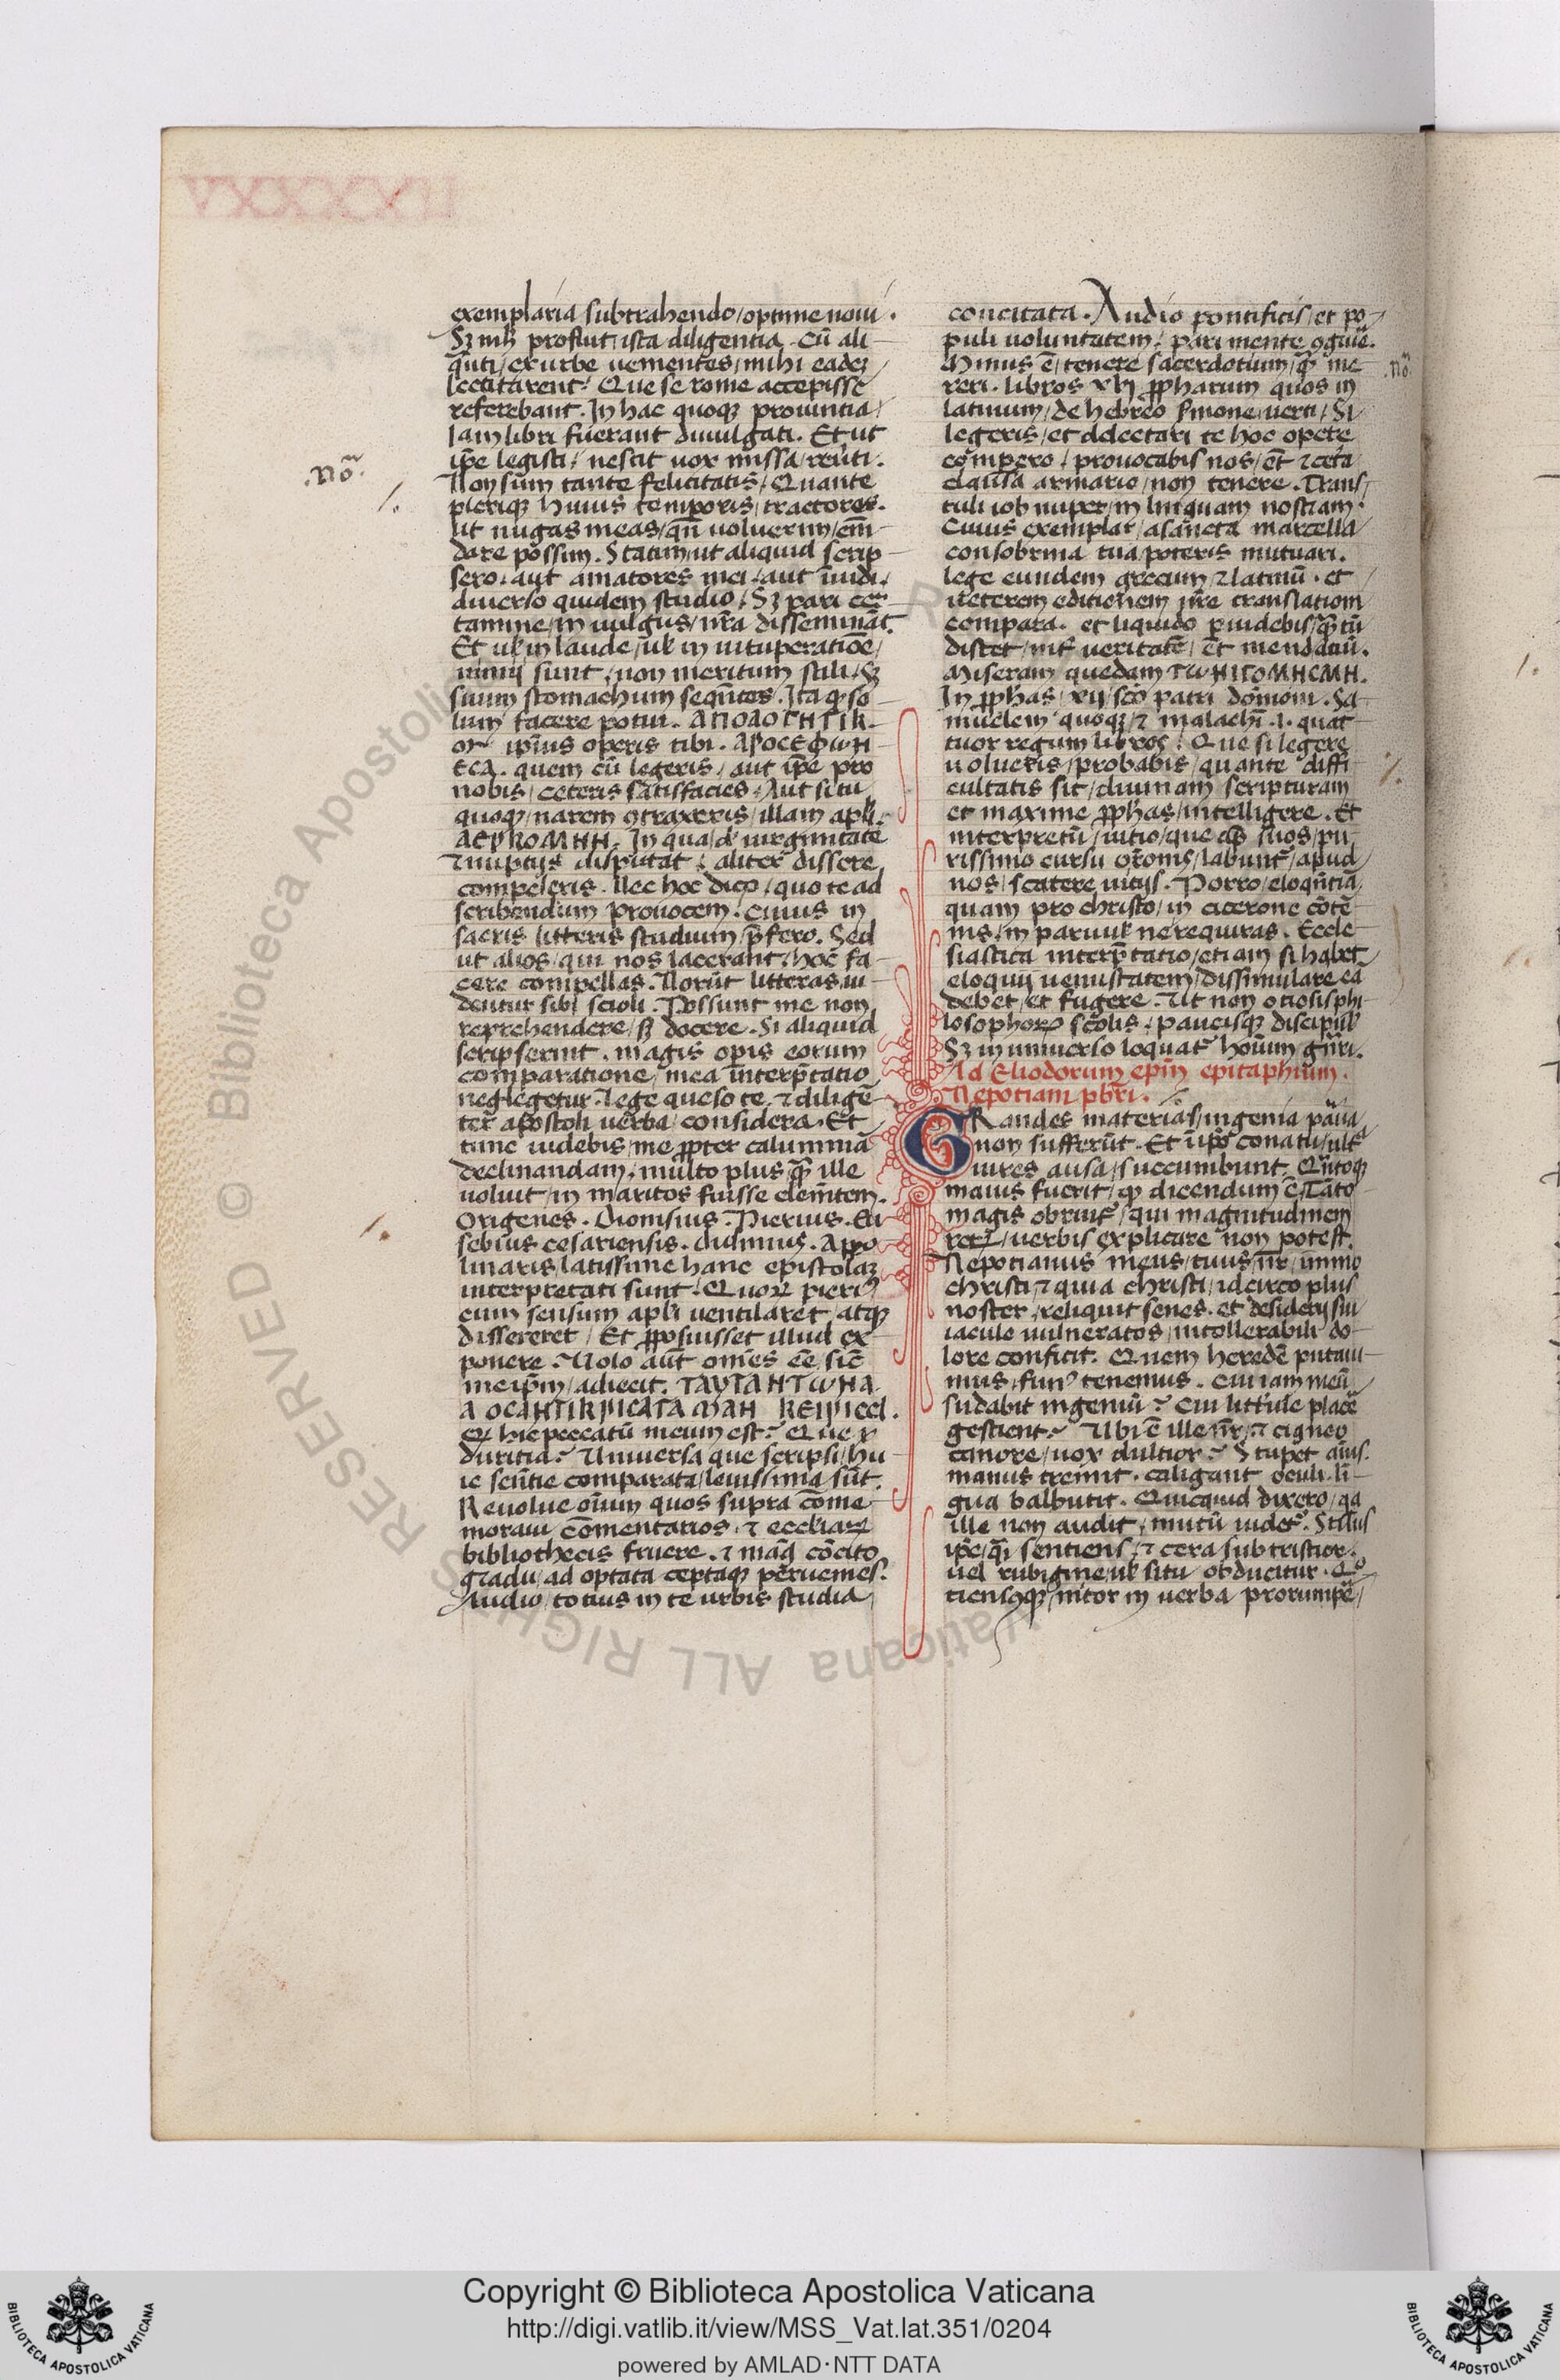 VXXXXVII
exemplaria subtrahendo/optime noui.
Sꝫ nichil profuit ista diligentia. Cū ali-
qn̄ti/ex urbe uenientes/mihi eadeꝫ
lectitarent/ Que se rome accepisse
referebant. In hac quoqꝫ prouintia/
Iam libri fuerant diuulgati. Et ut
ip̄e legisti/ nescit uox missa/reūti.
Non sum tante felicitatis/ Quante
pleriqꝫ huius temporis/tractores.
ut nugas meas/qn̄ uoluerim/em̄-
dare possim. Statim/ut aliquid scrip-
sero. aut amatores mei/aut inuidi/
diuerso quidem studio/ Sꝫ pari cer-
tamine/in uulgus/nr̄a dissemināt.
Et uł in laude/uł in uituperatiōe/
nimij sunt/non meritum stili/sꝫ
suum stomachum seqn̄tes. Itaqꝫ so-
lum facere potui. ΑΠΟΛΟΓΗΤΙΚ-
ον ip̄ius operis tibi. ΑΡΟCΕΦωΗ
ΕCΑ. quem cū legeris/ aut ip̄e pro
nobis/ceteris satisfacies. Aut si tu
quoqꝫ/narem ꝯtraxeris/illam apłi.
ΑΕΡΚΟΜΗΗ. In qua/d' uirginitate
⁊ nuptijs disputat/ aliter dissere
compeleris. Nec hoc dico/quo te ad
scribendum prouocem. cuius in
sacris litteris studium/p̄fero. Sed
ut alios/qui nos lacerant/hoc fa-
cere compellas. Norūt litteras/ui-
dentur sibi scioli. Possunt me non
reprehendere/sꝫ docere. Si aliquid
scripserint. magis opis eorum
comparatione/mea interp̄tatio
neglegetur. Lege queso te/⁊ diligē-
ter apostoli uerba/considera. Et
tunc uidebis/me ꝓpter calumniā
declinandam/multo plus/qꝫ ille
uoluit/in maritos fuisse clemn̄tem.
Origenes. Dionisius. Pierius. Eu-
sebius cesariensis. didimus. Appo-
linaris/latissime hanc epistolaꝫ
interpretati sunt. Quoꝝ pieri⁹
cum sensum apłi uentilaret/atqꝫ
dissereret/ Et ꝓposuisset illud ex-
ponere. Uolo aūt omēs eē/sic̄
meip̄m/adiecit. ΤΑΥΤΑ ΗΤωΗΑ
Α ΟCΑΗΤΙΚΡΙΙCΑΤΑ ΜΑΗ ΚΕΙΙΙCCΙ.
Qꝫ hic peccatū meum est? Que
duritia? Uniuersa que scripsi/hu-
ic sentn̄tie comparata/leuissima sūt.
Reuolue oīum quos supra cōme-
moraui/cōmentarios/⁊ eccłiaꝝ
bibliothecis fruere/⁊ magꝫ cōcito
gradu/ad optata ceptaqꝫ peruenies.
Audio/totius in te urbis studia
concitata. Audio pontificis/et po-
puli uoluntatem/ pari mente ꝯgrue.
Minus ē/tenere sacerdotium/qꝫ me-
reri. libros xvj ꝓpharum quos in
latinum/de hebreo s̄mone/uerti/ Si
legeris/et delectari te hoc opere
cōmpero/ prouocabis nos/ēt ⁊ cetra
clausa armario/non tenere. Trans-
tuli iob nuper/in linguam nostram.
Cuius exemplar/a sancta marcella/
consobrina tua/poteris mutuari.
lege eundem grecum/⁊ latinū. et
ueterem editionem nr̄e translationi
compara. et liquido ꝑuidebis/qꝫtū
distet/int̄ ueritatē/ et mendatiū.
Miseram quedam ΤωΗΙΤΟΜΗCΜΗ.
In ꝓphas/xij/sc̄o patri domn̄ioni. Sa-
muelem quoqꝫ/⁊ malachī. i. quat-
tuor regum libros/ Que si legere
uolueris/probabis/quante diffi-
cultatis sit/diuinam scripturam
et maxime ꝓphas/intelligere. Et
interpretū/uitio/que apꝫ suos/pu-
rissimo cursu or̄onis/labunt̄/apud
nos/scatere uitijs. Porro/eloqn̄tiā
quam pro christo/in cicerone cōtē-
nis/in paruuł ne requiras. Eccle-
siastica interp̄tatio/etiam si habet
eloquij uenustatem/dissimulare ea
debet/et fugere. Ut non otiosis phi-
losophoꝝ scolis. paucisqꝫ discipuł
Sꝫ in uniuerso loquat̄ hoīum gn̄ri.
Ad Eliodorum ep̄m epitaphium.
Nepotiani pb̄ri.
GRandes materias/ingenia parua
non sufferūt. Et in ip̄o conatu/ult̄
uires ausa/succumbunt. Qn̄toqꝫ
maius fuerit/qꝫ dicendum ē/Tāto
magis obruit̄/qui magnitudinem
reꝝ/uerbis explicare non potest.
Nepotianus meus/tuus/nr̄/immo
christi/⁊ quia christi/idcirco plus
noster/reliquit senes. et desiderij sui
iaculo uulneratos/intollerabili do-
lore conficit. Quem heredē putaui-
mus/fun⁹ tenemus. cui iam meū
sudabit ingeniū? Cui litt̄ule placē
gestient? Ubi ē ille nr̄/⁊ cigneo
canore/uox dultior? Stupet aīus.
manus tremit. caligant oculi. lī-
gua balbutit. Quicquid dixero/qa
ille non audit/mutū uidet̄. Stilus
ip̄e/qꝫi sentiens/⁊ cera subtristior.
uel rubigine/uł situ obducitur. Quo-
tiensqꝫ/nitor in uerba prorumpē/
.nō.
.nō
Copyright © Biblioteca Apostolica Vaticana
http://digi.vatlib.it/view/MSS_Vat.lat.351/0204
powered by AMLAD·NTT DATA
BIBLIOTECA APOSTOLICA VATICANA
BIBLIOTECA APOSTOLICA VATICANA